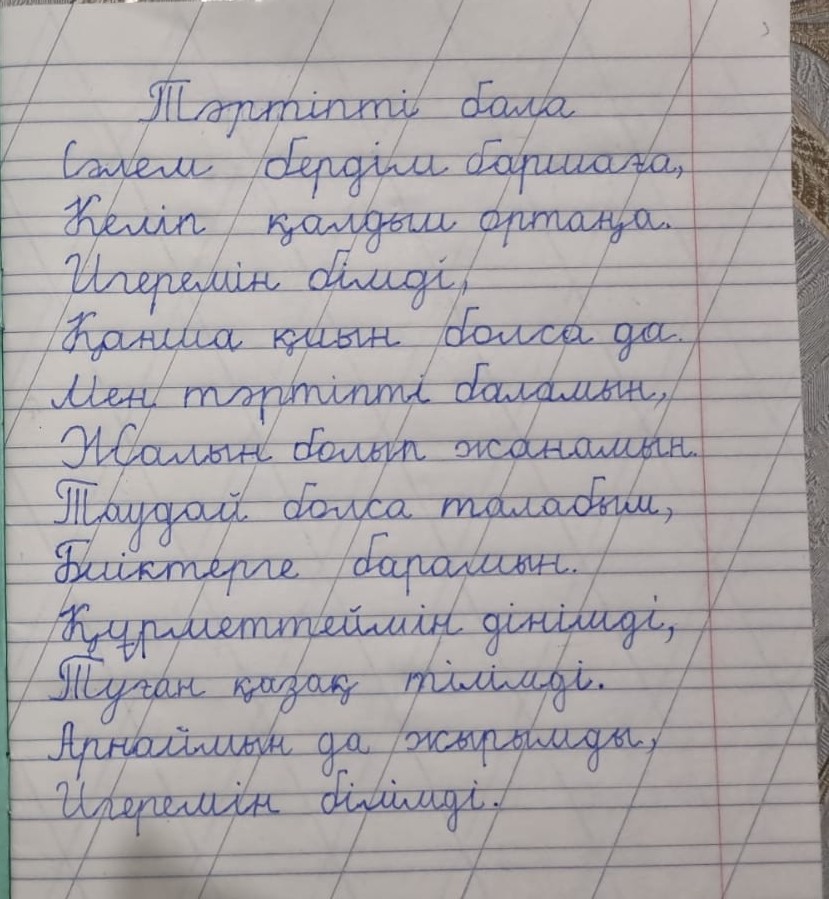 Тәртіпті бала
Сәлем бердім баршаға,
Келіп қалдым ортаңа.
Игеремін білмді,
Қанша қиын болса да.
Мен тәртіпті баламын,
Жалын болып жанамын.
Таудай болса талабым,
Биіктерге барамын.
Құрметтеймін дінімді,
Туған қазақ тілімді.
Арнаймын да жырымды,
Игеремін білімді.